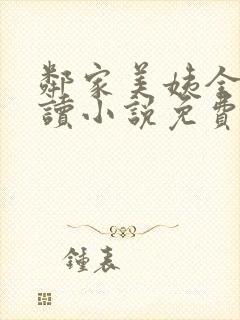 鄰家美姨全
讀小說免費
鍾表